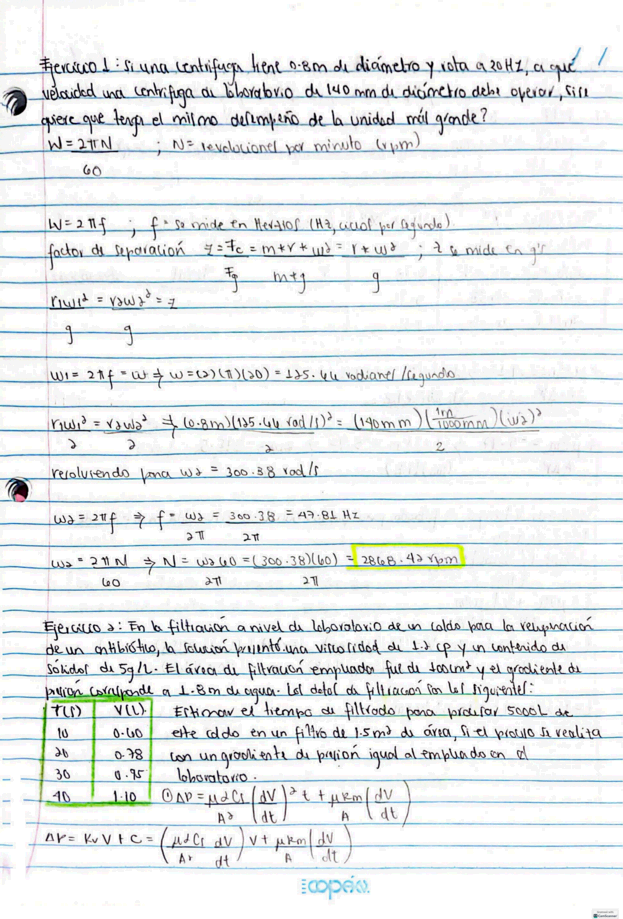 Ejercicio 1: Si una centrifuga tiene 0.8m de diámetro y rota a 20HZ, a qué
velocidad una centrifuga de laboratorio de 140 mm de diámetro debe operar, si se
quiere que tenga el mismo desempeño de la unidad más grande?
W = 2πN ; N = revoluciones por minuto (rpm)
60
W = 2πf ; f = se mide en Hertzios (Hz, ciclos por segundo)
factor de separación z = Fc = m*r*ω2 = r*ω2 ; z se mide en g's
Fg m*g g
r1ω1² = r2ω2² = z
g g
ω1 = 2πf = ω ⇒ ω = (2)(π)(20) = 125.66 radianes/segundo
r1ω1² = r2ω2² ⇒ (0.8m)(125.66 rad/s)² = (140mm)(1m/1000mm)(ω2)²
2 2 2 2
resolviendo para ω2 = 300.38 rad/s
ω2 = 2πf ⇒ f = ω2 = 300.38 = 47.81 Hz
2π 2π
ω2 = 2πN ⇒ N = ω2 60 = (300.38)(60) = 2868.42 rpm
60 2π 2π
Ejercicio 2: En la filtración a nivel de laboratorio de un caldo para la recuperación
de un antibiótico, la solución presentó una viscosidad de 1.2 cp y un contenido de
sólidos de 5g/L. El área de filtración empleada fue de 100cm² y el gradiente de
presión corresponde a 1.8m de agua. Los datos de filtración son los siguientes:
T(s) V(L) Estimar el tiempo de filtrado para procesar 5000L de
10 0.60 este caldo en un filtro de 1.5m² de área, si el proceso se realiza
20 0.78 con un gradiente de presión igual al empleado en el
30 0.95 laboratorio.
40 1.10 ① ΔP = μαCs (dV)² t + μRm (dV)
A² (dt) A (dt)
ΔP = KvV + C = (μαCs dV) V + μRm (dV)
A² dt A (dt)
copán